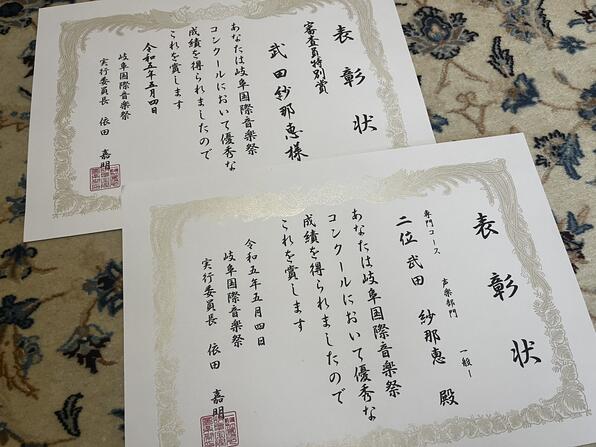 表彰状
審査員特別賞
武田紗那恵様
あなたは岐阜国際音楽祭
コンクールにおいて優秀な
成績を得られましたので
これを賞します
令和五年五月四日
岐阜国際音楽祭
実行委員長 依田 嘉明
表彰状
専門コース 声楽部門 一般Ⅰ
二位 武田 紗那恵 殿
あなたは岐阜国際音楽祭
コンクールにおいて優秀な
成績を得られましたので
これを賞します
令和五年五月四日
岐阜国際音楽祭
実行委員長 依田 嘉明